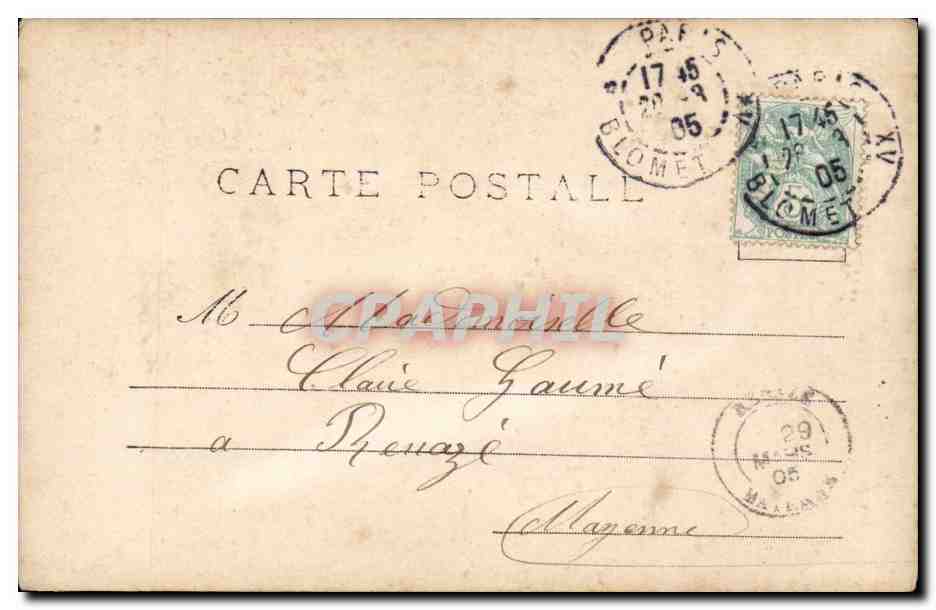 PARIS XV
17 45
28 -3
05
BLOMET
PARIS XV
17 45
28 3
05
BLOMET
5
POSTES
CARTE POSTALE
CPARHIL
M Mademoiselle
Claire Gaumé
a Renazé
Mayenne
RENAZÉ
29
MARS
05
MAYENNE